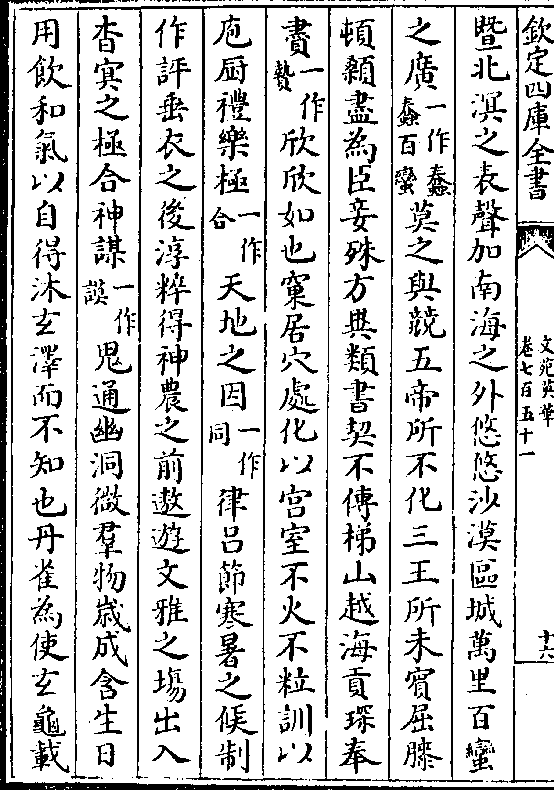 欽定四庫全書
文苑英華
卷七百五十一
十六
暨北溟之表聲加南海之外悠悠沙漠區域萬里百蠻
之廣一作蠢蠢百蠻莫之與競五帝所不化三王所未賓屈膝
頓顙盡為臣妾殊方異類書契不傳梯山越海貢琛奉
賮一作贄欣欣如也窠居穴處化以宫室不火不粒訓以
庖厨禮樂極一作合天地之因一作同律吕節寒暑之候制
作評垂衣之後淳粹得神農之前遨遊文雅之塲出入
杳冥之極合神謀一作謨鬼通幽洞微羣物歲成含生日
用飲和氣以自得沐玄澤而不知也丹雀為使玄龜載